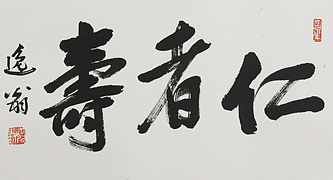 仁者壽
逸翁